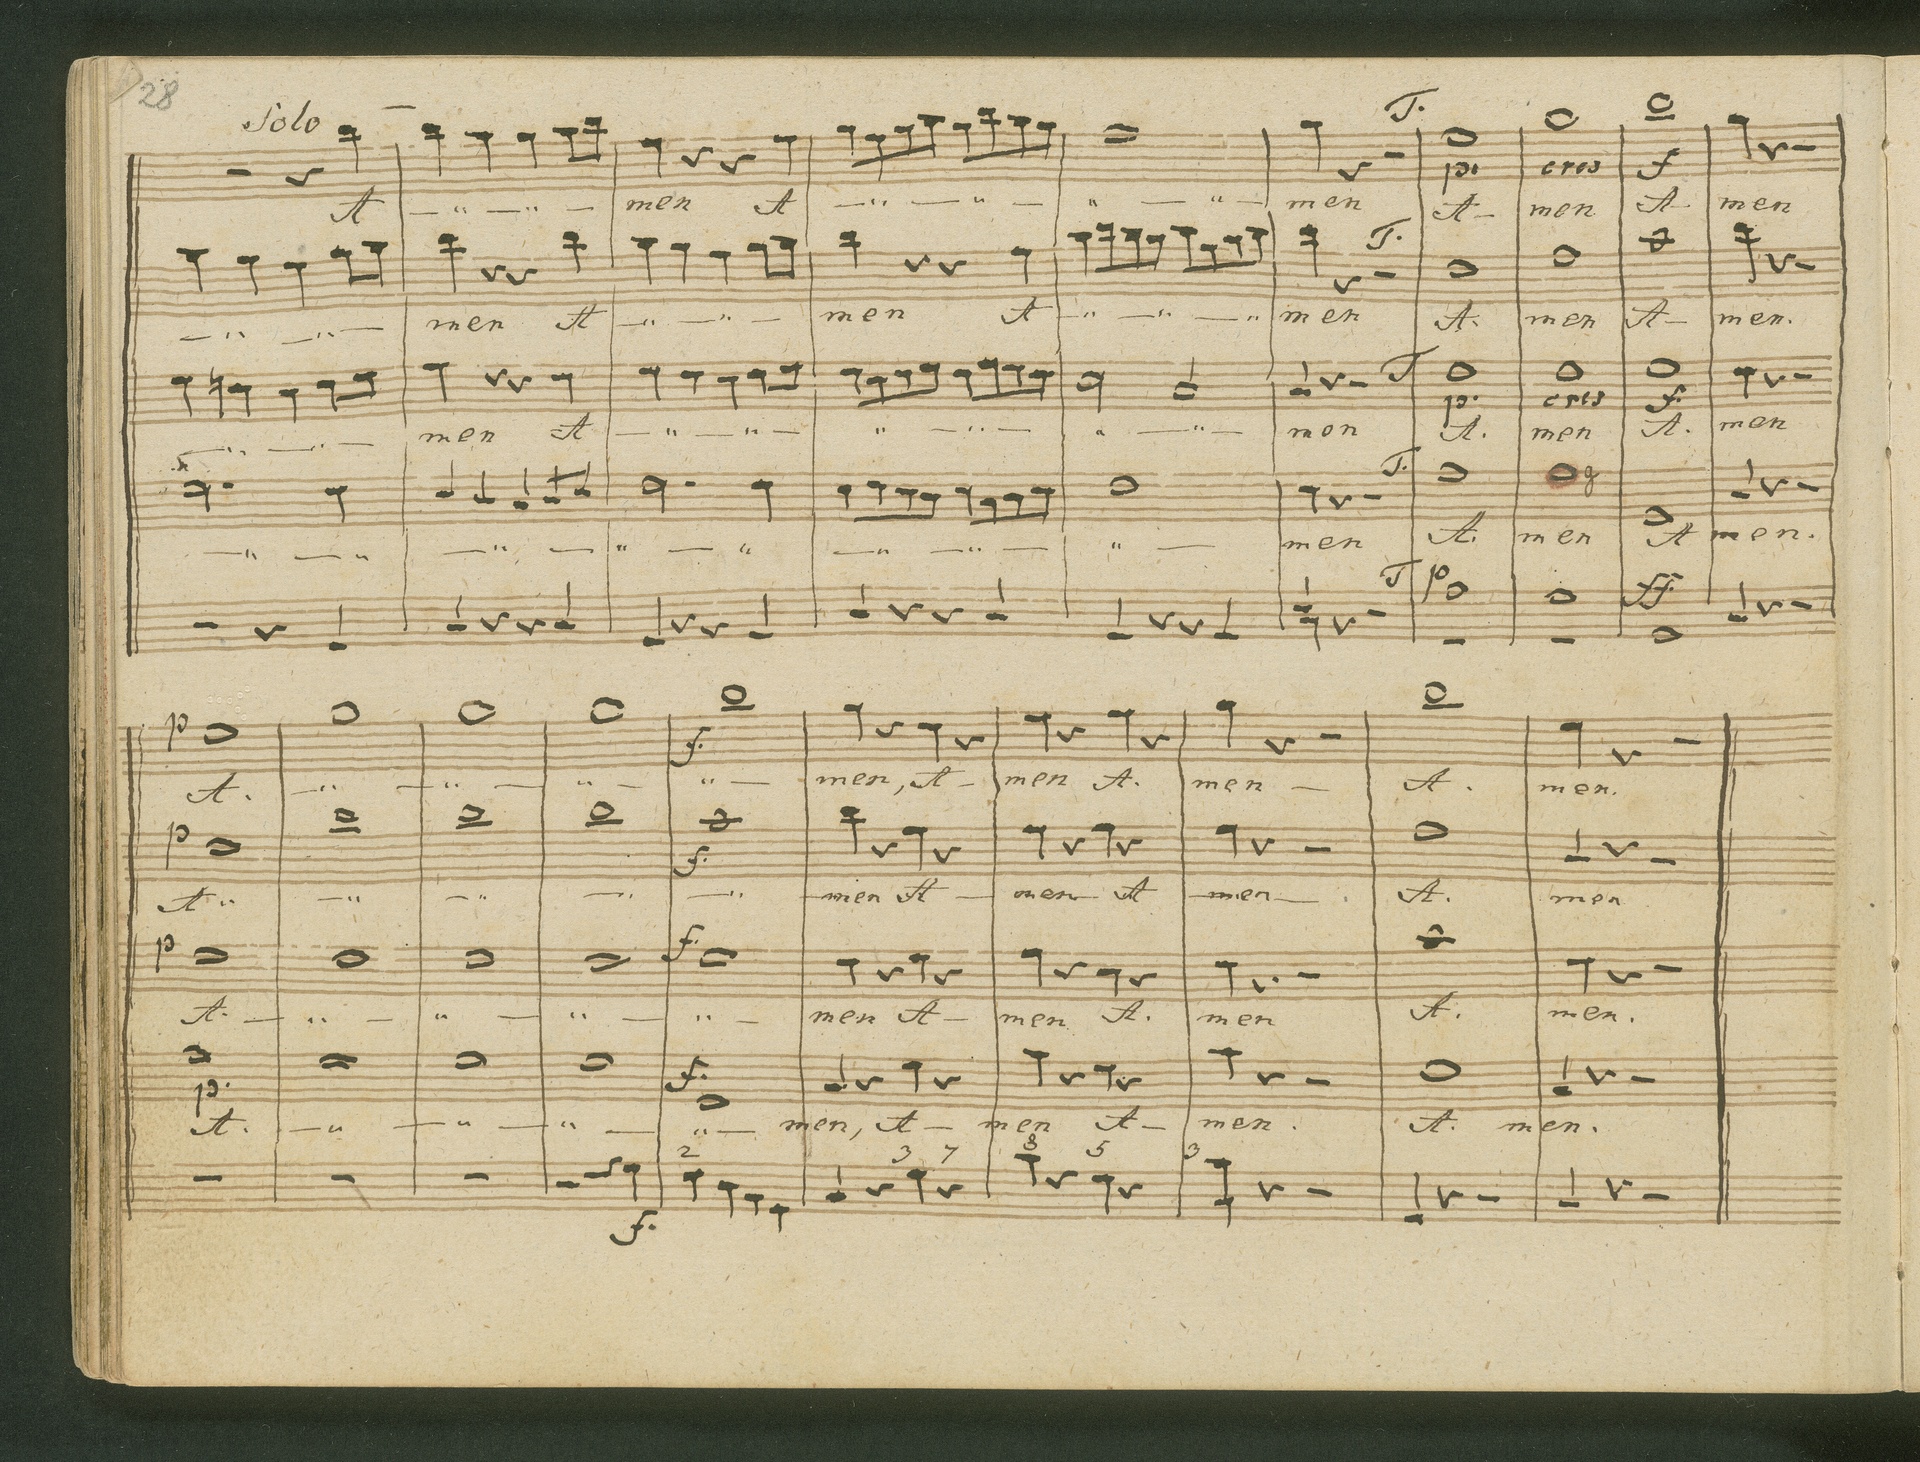 28
Solo
T.
p. cres f
A — " — " — men A — " — " — " — " — men A — men A — men
T.
— " — " — men A — " — " — men A — " — " — " men A. men A — men.
T
p. cres f.
— " — " — men A — " — " — " — " — " — " — men A. men A. men
T.
g
— " — " — " — " — " — " — " — " — men A. men A men.
T p ff.
p f.
A. — " — " — " — " — men, A — men A. men — A. men.
p f.
A " — " — " — " — " men A — men A men — A. men
p f.
A. — " — " — " — " — men A — men A. men A. men.
p. f.
A. — " — " — " — " — men, A — men A — men. A. men.
2 3 7 8 5 3
f.